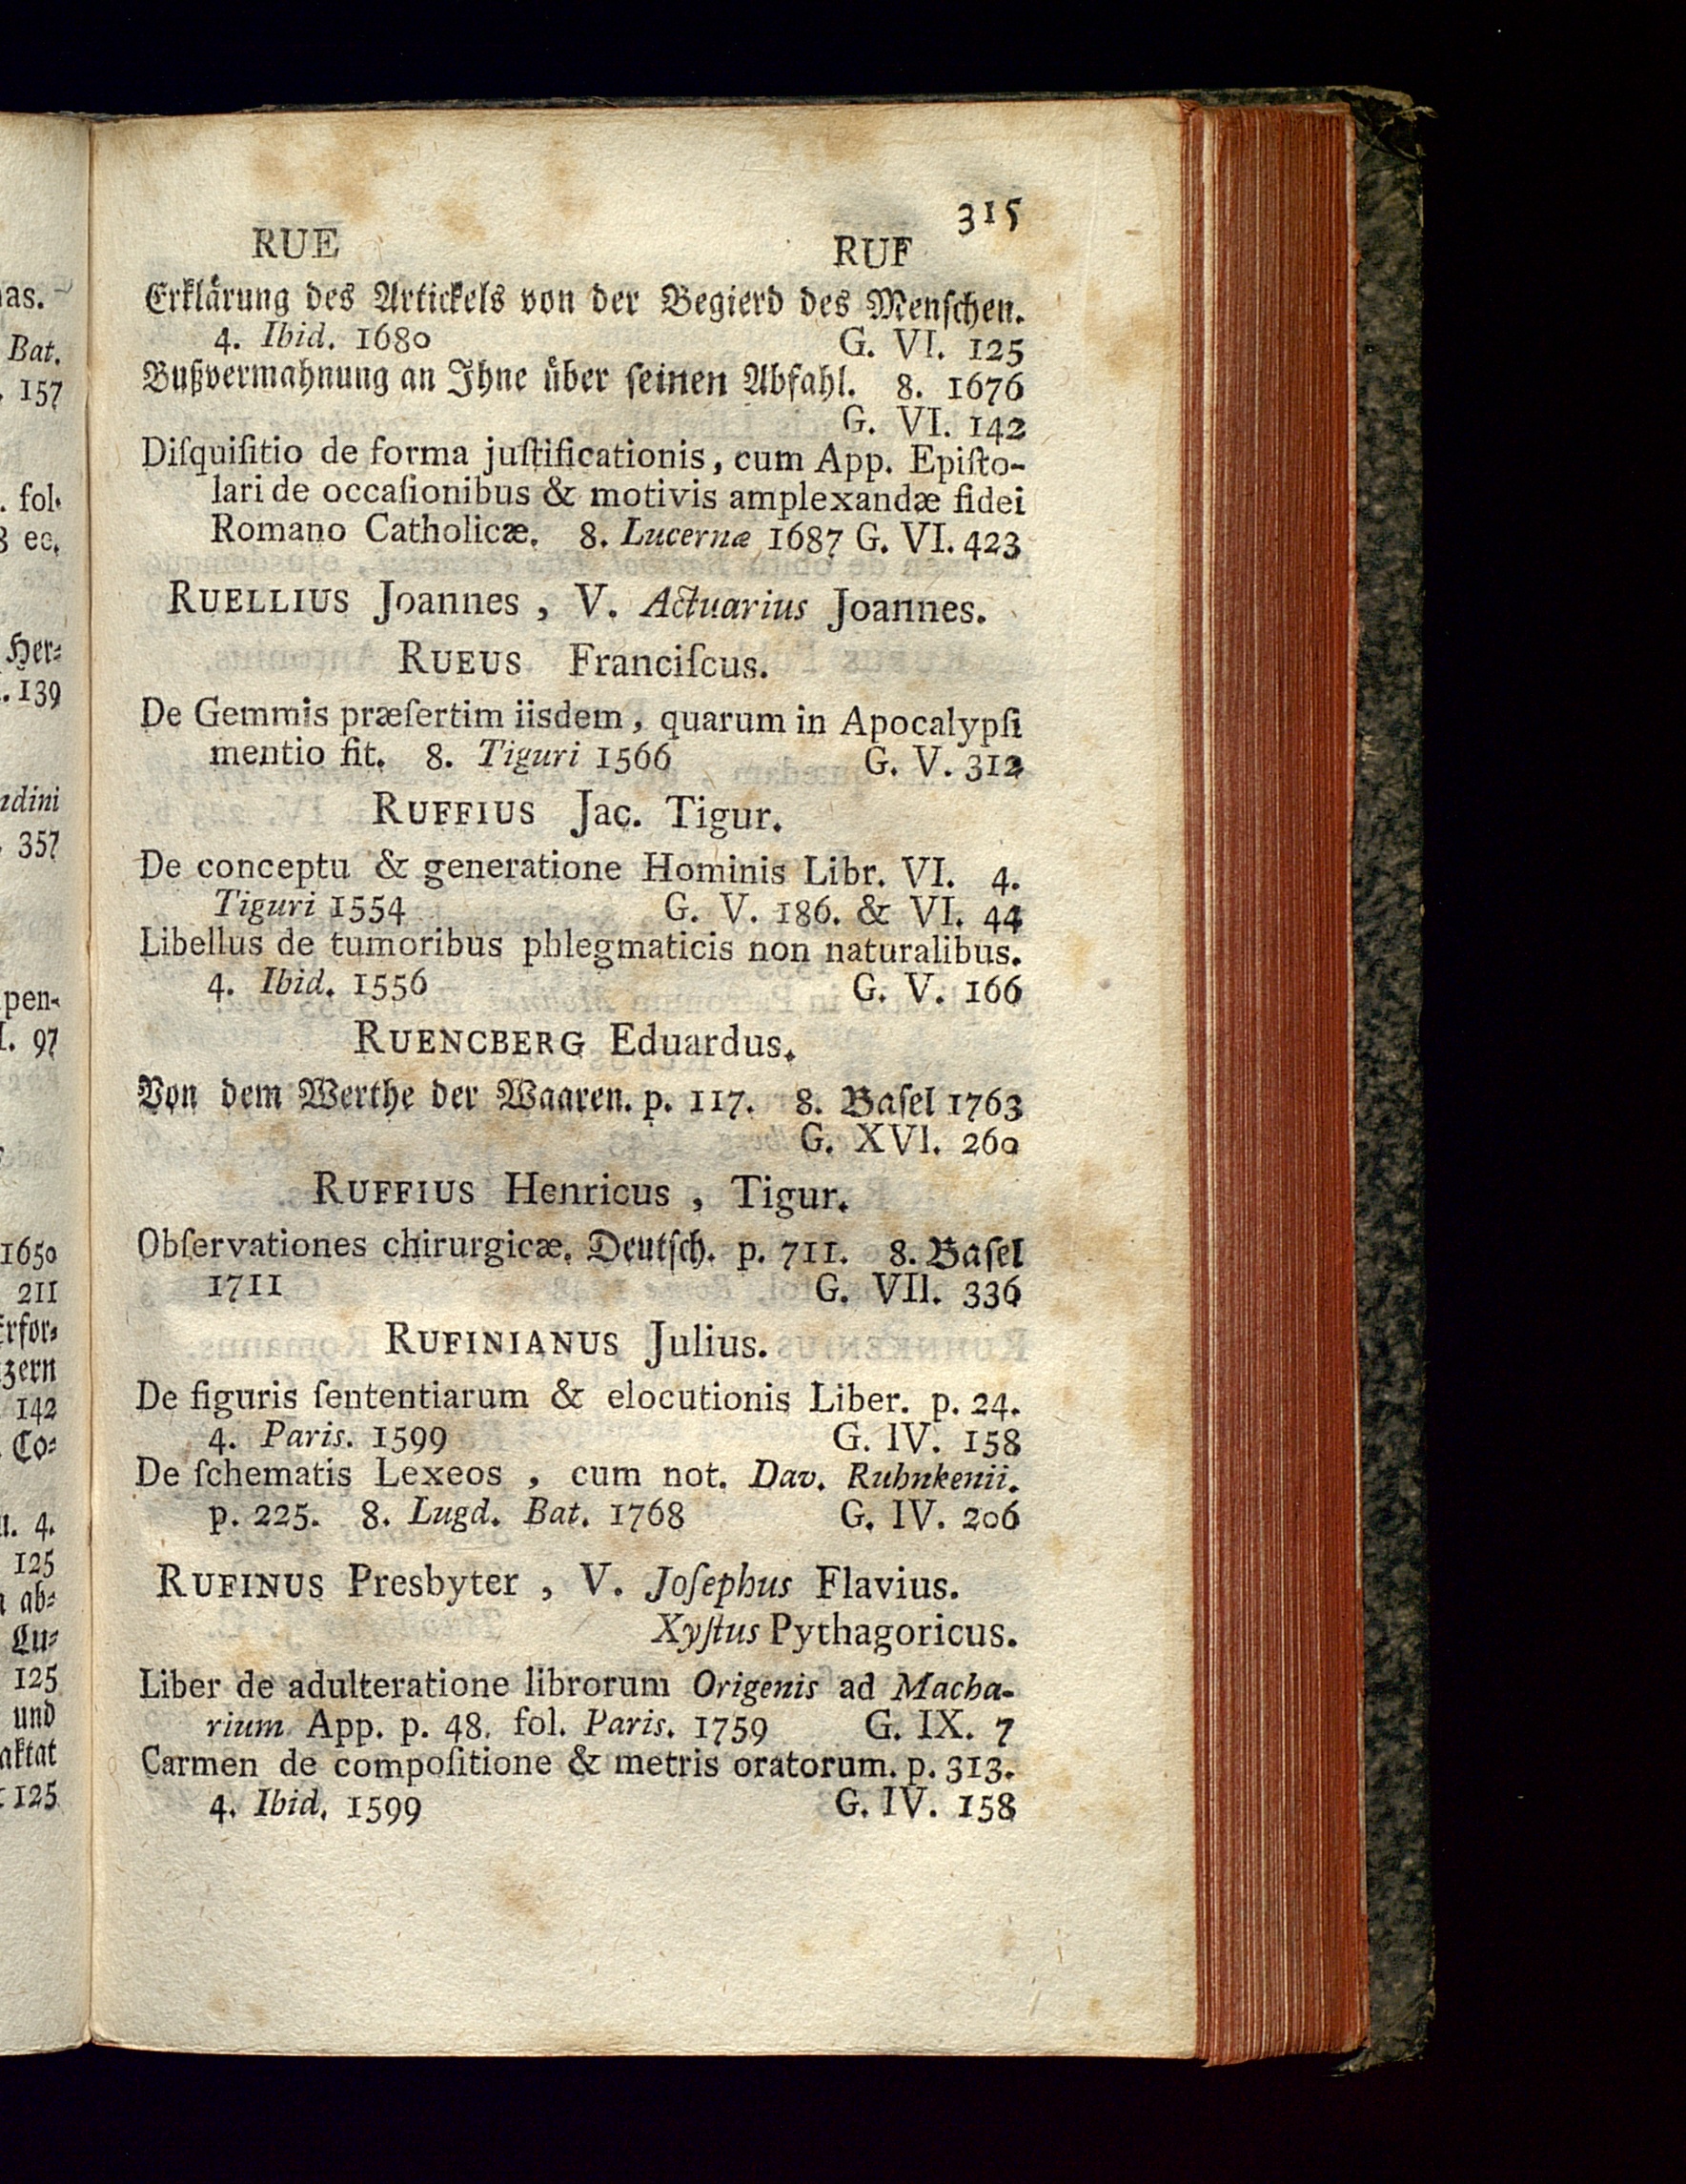 315
RUE RUF
Erklärung des Artickels von der Begierd des Menſchen.
4. Ibid. 1680 G. VI. 125
Bußvermahnung an Ihne über ſeinen Abfahl. 8. 1676
G. VI. 142
Diſquiſitio de forma juſtificationis, cum App. Epiſto-
lari de occaſionibus & motivis amplexandæ fidei
Romano Catholicæ. 8. Lucernæ 1687 G. VI. 423
RUELLIUS Joannes, V. Actuarius Joannes.
RUEUS Franciſcus.
De Gemmis præſertim iisdem, quarum in Apocalypſi
mentio fit. 8. Tiguri 1566 G. V. 312
RUFFIUS Jac. Tigur.
De conceptu & generatione Hominis Libr. VI. 4.
Tiguri 1554 G. V. 186. & VI. 44
Libellus de tumoribus phlegmaticis non naturalibus.
4. Ibid. 1556 G. V. 166
RUENCBERG Eduardus.
Von dem Werthe der Waaren. p. 117. 8. Baſel 1763
G. XVI. 260
RUFFIUS Henricus, Tigur.
Obſervationes chirurgicæ. Deutſch. p. 711. 8. Baſel
1711 G. VII. 336
RUFINIANUS Julius.
De figuris ſententiarum & elocutionis Liber. p. 24.
4. Paris. 1599 G. IV. 158
De ſchematis Lexeos, cum not. Dav. Ruhnkenii.
p. 225. 8. Lugd. Bat. 1768 G. IV. 206
RUFINUS Presbyter, V. Joſephus Flavius.
Xyſtus Pythagoricus.
Liber de adulteratione librorum Origenis ad Macha-
rium App. p. 48. fol. Paris. 1759 G. IX. 7
Carmen de compoſitione & metris oratorum. p. 313.
4. Ibid. 1599 G. IV. 158